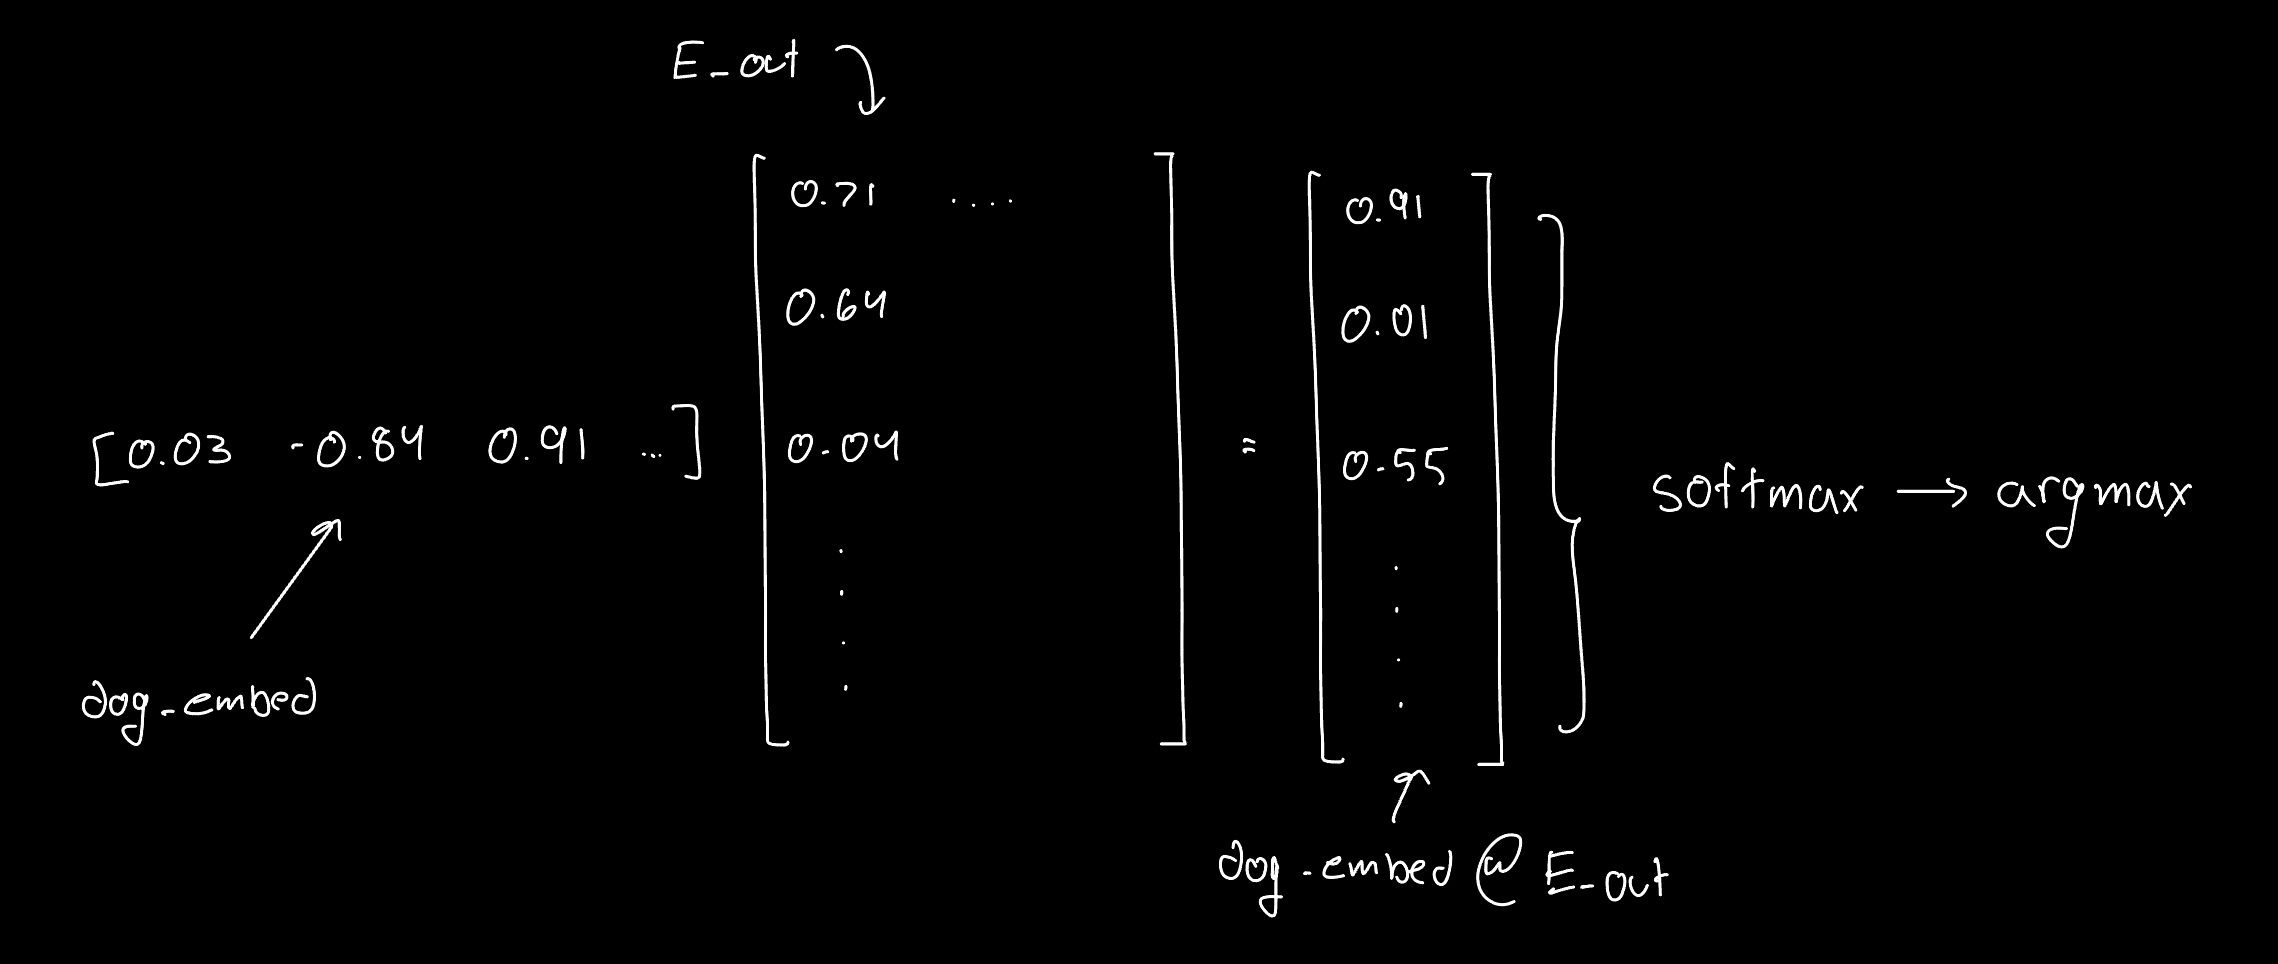 E_out
0.71 ....
0.64
[0.03 -0.84 0.91 ...] 0.04
=
0.91
0.01
0.55
softmax → argmax
dog_embed
dog_embed @ E_out